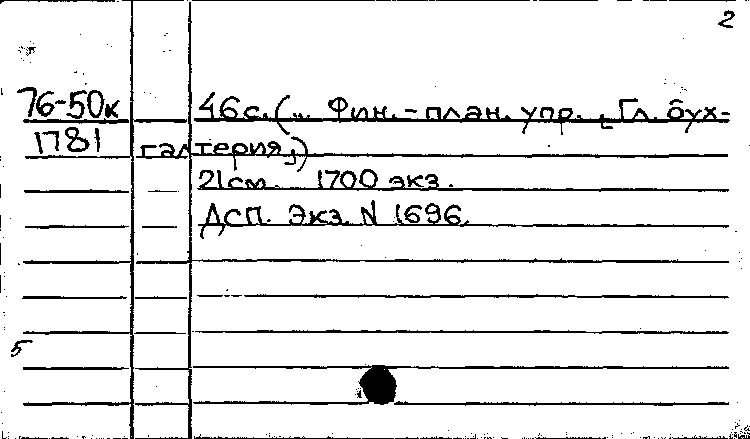 2
76-50к 46с. (... Фин.-план. упр., [Гл. бух-
1781 галтерия])
21см. 1700 экз.
ДСП. Экз. N 1696.
5